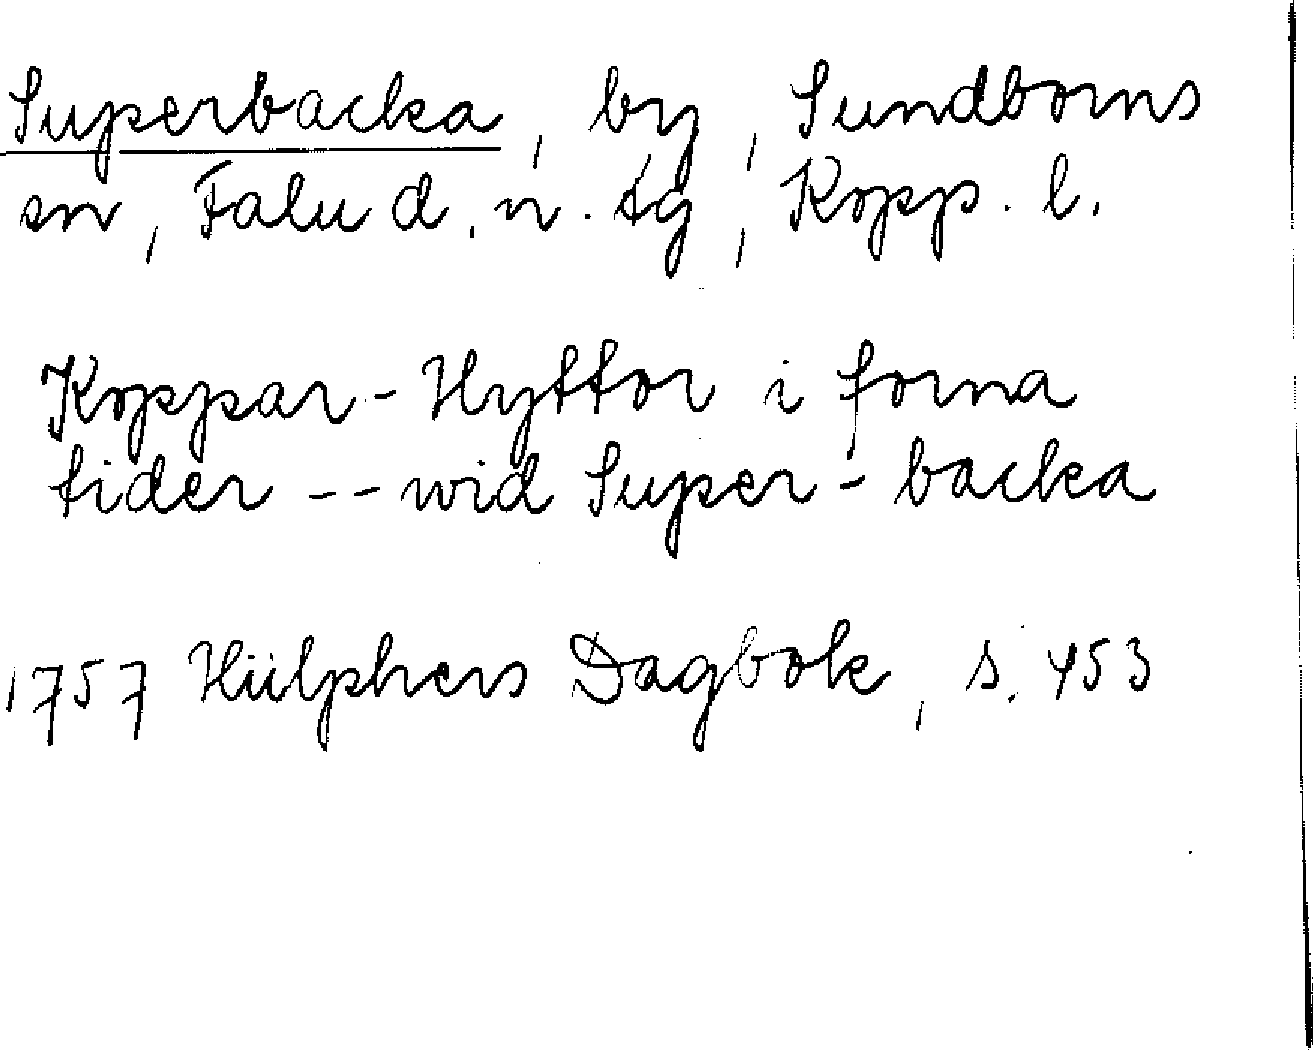 Superbacka, by, Sundborns
sn, Falu d. n. tg, Kopp. l.
Koppar-Hyttor i forna
tider -- wid Super-backa
1757 Hülphers Dagbok, s. 453